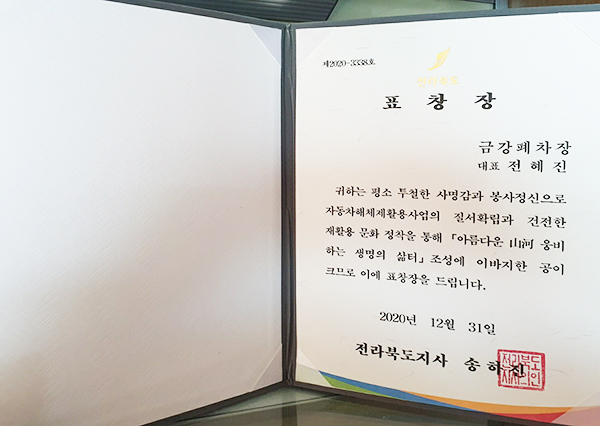 제2020-3338호
전라북도
표 창 장
금강폐차장
대표 전혜진
귀하는 평소 투철한 사명감과 봉사정신으로
자동차해체재활용사업의 질서확립과 건전한
재활용 문화 정착을 통해 「아름다운 山河 웅비
하는 생명의 삶터」 조성에 이바지한 공이
크므로 이에 표창장을 드립니다.
2020년 12월 31일
전라북도지사 송하진
전라북도
지사의인